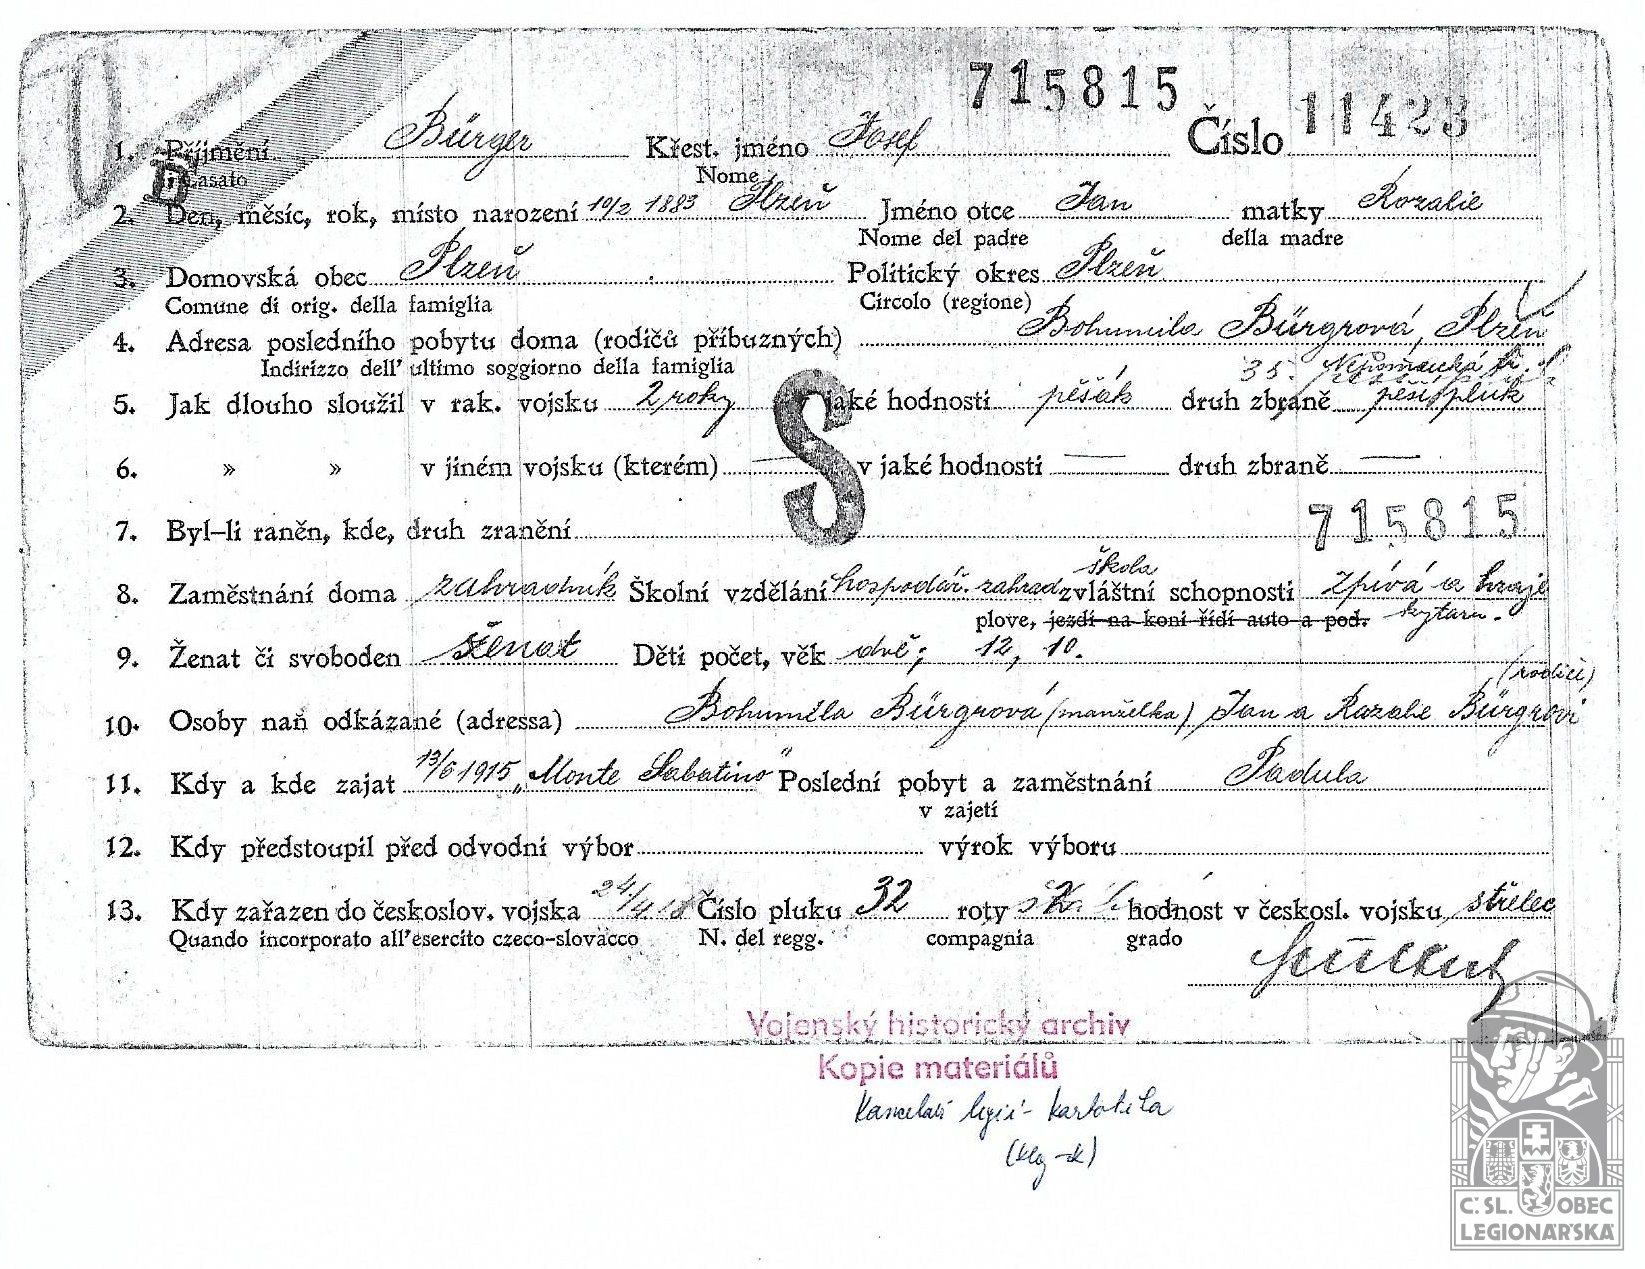 715815
1. Příjmení Bürger Křest. jméno Josef Číslo 11423
di Casato Nome
2. Den, měsíc, rok, místo narození 10/2 1883 Plzeň Jméno otce Jan matky Rozalie
Nome del padre della madre
3. Domovská obec Plzeň Politický okres Plzeň
Comune di orig. della famiglia Circolo (regione)
4. Adresa posledního pobytu doma (rodičů příbuzných) Bohumila Bürgrová, Plzeň
Indirizzo dell' ultimo soggiorno della famiglia Nepomucká tř.
5. Jak dlouho sloužil v rak. vojsku 2 roky v jaké hodnosti pěšák druh zbraně 35. pěší pluk
6. » » v jiném vojsku (kterém) — v jaké hodnosti — druh zbraně —
S
7. Byl-li raněn, kde, druh zranění 715815
8. Zaměstnání doma zahradník Školní vzdělání hospodář. zahrad. škola zvláštní schopnosti zpívá a hraje
plove, jezdí na koni řídí auto a pod. kytaru.
9. Ženat či svoboden ženat Děti počet, věk dvě; 12, 10.
(rodiče)
10. Osoby naň odkázané (adressa) Bohumila Bürgrová (manželka) Jan a Rozalie Bürgrovi
11. Kdy a kde zajat 13/6 1915, „Monte Sabatino" Poslední pobyt a zaměstnání Padula
v zajetí
12. Kdy předstoupil před odvodní výbor výrok výboru
13. Kdy zařazen do českoslov. vojska 24/4 18 Číslo pluku 32 roty hodnost v českosl. vojsku střelec
Quando incorporato all'esercito czeco-slovacco N. del regg. compagnia grado
Vojenský historický archiv
Kopie materiálů
Kancelář legií - kartotéka
(klg-k)
Č.SL. OBEC
LEGIONÁŘSKÁ